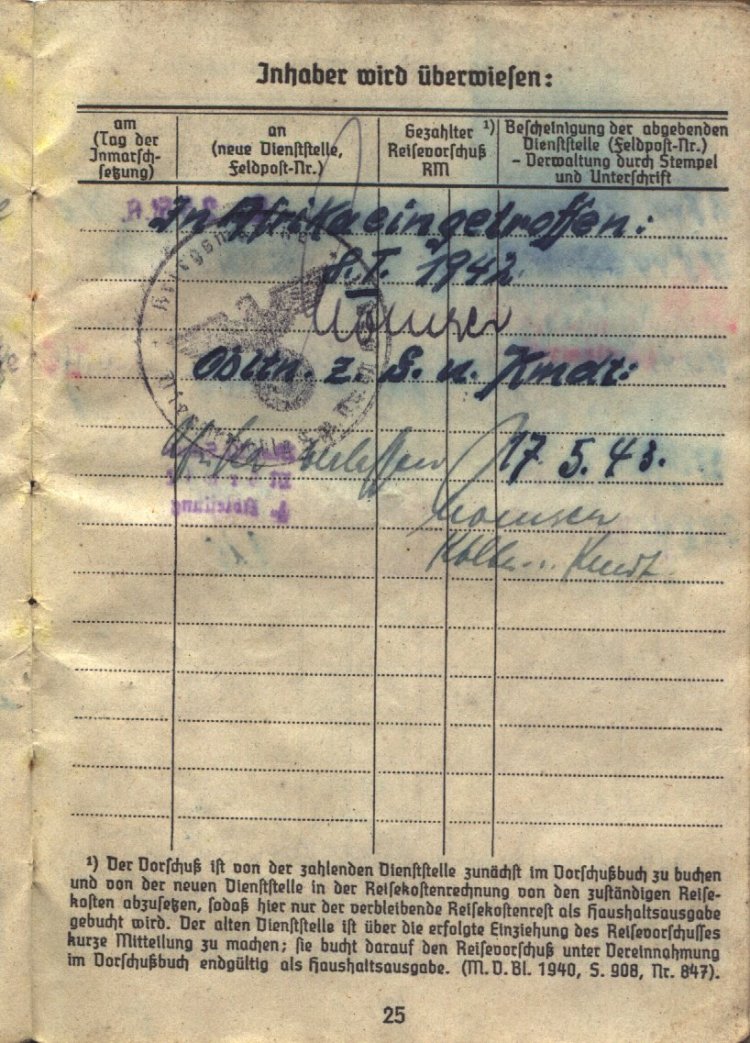 Inhaber wird überwiesen:
am
(Tag der
Inmarsch-
setzung)
an
(neue Dienststelle,
Feldpost-Nr.)
Gezahlter ¹)
Reisevorschuß
RM
Bescheinigung der abgebenden
Dienststelle (Feldpost-Nr.)
– Verwaltung durch Stempel
und Unterschrift
In Afrika eingetroffen:
1942
Obltn. z. S. u. Kmdt:
Afrika verlassen 17 5. 43.
Kmdt.
¹) Der Vorschuß ist von der zahlenden Dienststelle zunächst im Vorschußbuch zu buchen
und von der neuen Dienststelle in der Reisekostenrechnung von den zuständigen Reise-
kosten abzusetzen, sodaß hier nur der verbleibende Reisekostenrest als Haushaltsausgabe
gebucht wird. Der alten Dienststelle ist über die erfolgte Einziehung des Reisevorschusses
kurze Mitteilung zu machen; sie bucht darauf den Reisevorschuß unter Vereinnahmung
im Vorschußbuch endgültig als Haushaltsausgabe. (M. V. Bl. 1940, S. 908, Nr. 847).
25